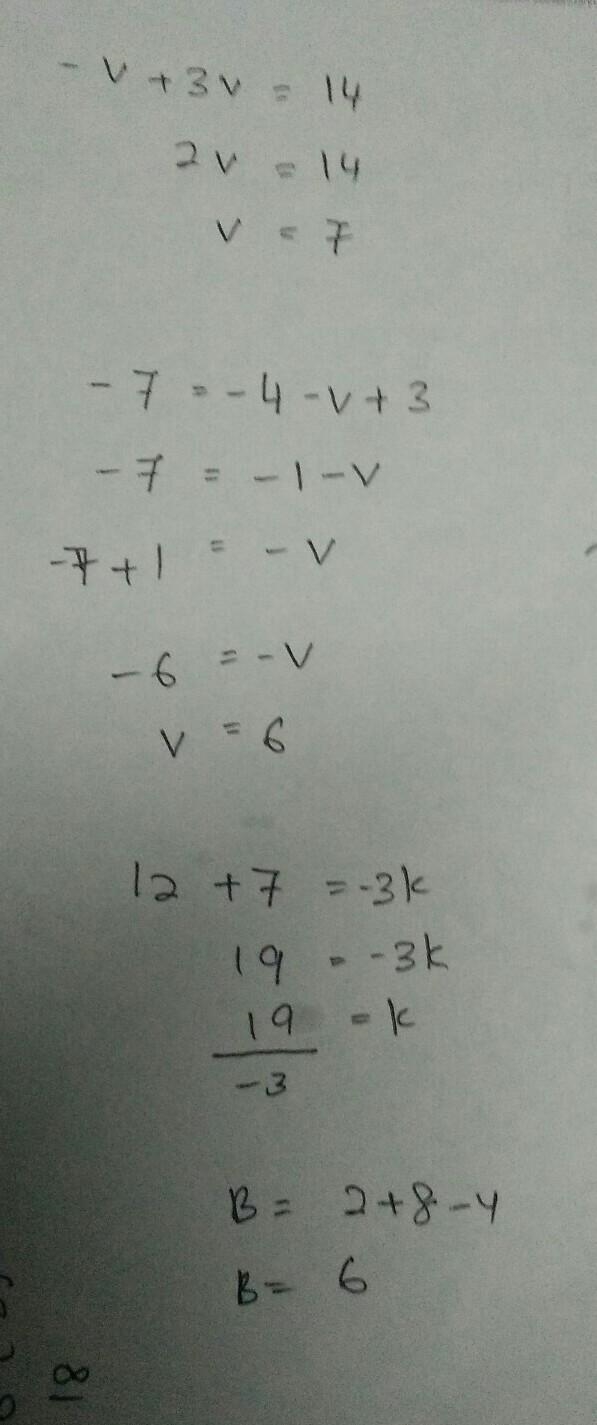 - v + 3v = 14
2v = 14
v = 7
- 7 = - 4 - v + 3
- 7 = - 1 - v
-7 + 1 = - v
- 6 = - v
v = 6
12 + 7 = -3k
19 = -3k
19/-3 = k
B = 2 + 8 - 4
B = 6